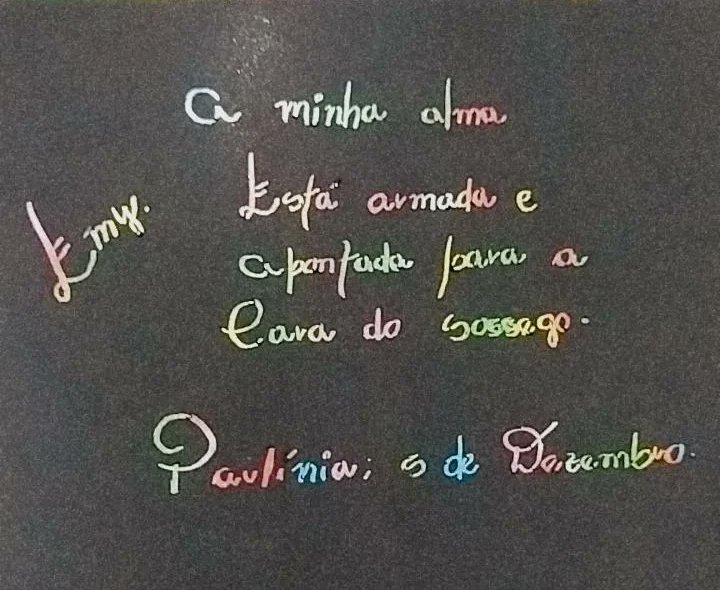 A minha alma
Está armada e
Emy.
apontada para a
Cara do sossego.
Paulínia; 5 de Dezembro.